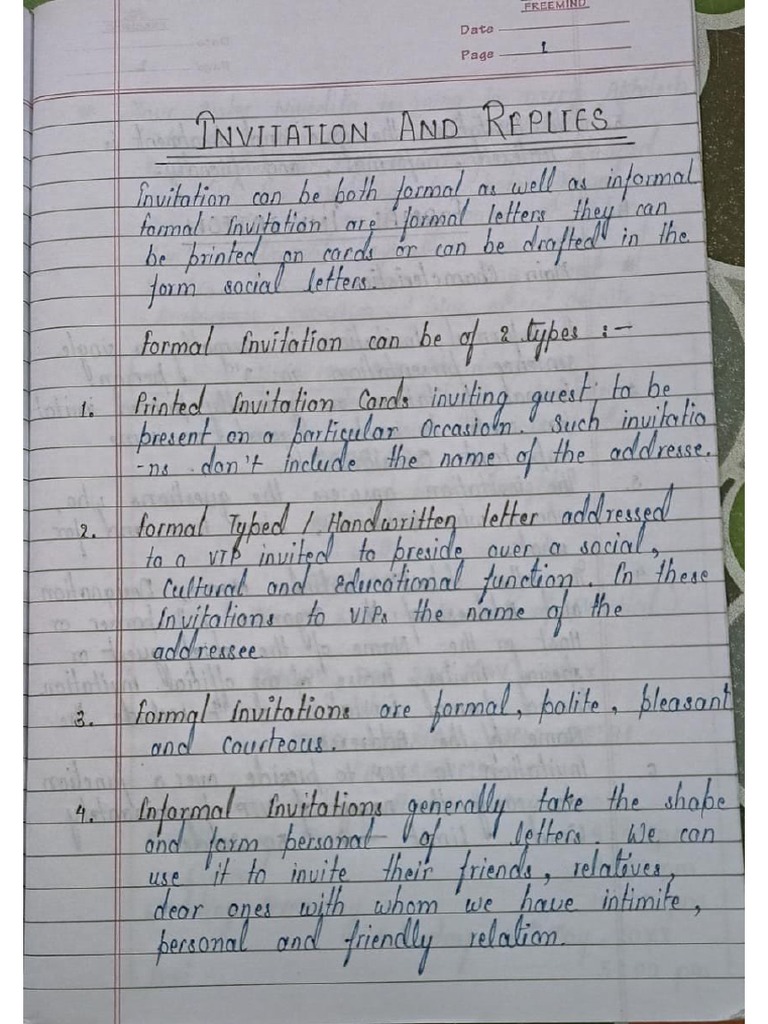 FREEMIND
Date
Page 1
INVITATION AND REPLIES
Invitation can be both formal as well as informal
formal Invitation are formal letters they can
be printed on cards or can be drafted in the
form social letters.
formal Invitation can be of 2 types :-
1. Printed Invitation Cards inviting guest to be
present on a particular Occasion. Such invitatio
-ns don't include the name of the addresse.
2. formal Typed / Handwritten letter addressed
to a VIP invited to preside over a social,
Cultural and educational function. In these
Invitations to VIPs the name of the
addressee.
3. formal Invitations are formal, polite, pleasant
and courteous.
4. Informal Invitations generally take the shape
and form personal of letters. We can
use it to invite their friends, relatives,
dear ones with whom we have intimite,
personal and friendly relation.